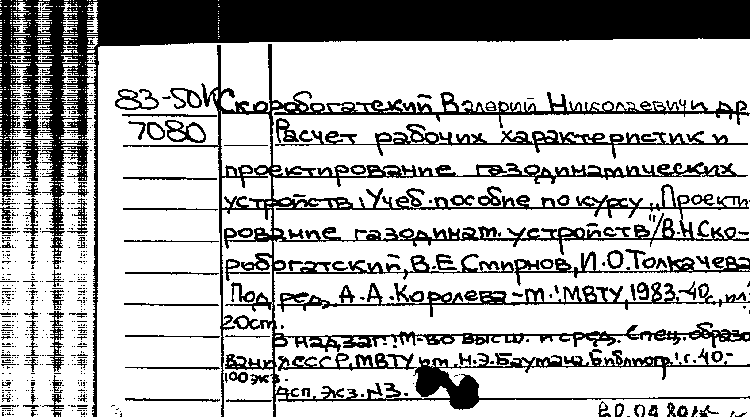 83-50К Скоробогатский, Валерий Николаевич и др
7080 Расчет рабочих характеристик и
проектирование газодинамических
устройств: Учеб. пособие по курсу "Проекти-
рование газодинам. устройств"/В.Н Ско-
робогатский, В.Е Смирнов, И.О.Толкачева
Под ред. А.А.Королева-М.:МВТУ,1983.-40с., ил.
20см.
В надзаг.: М-во высш. и сред. спец. образо
вания СССР, МВТУ им. Н.Э.Баумана. Библиогр.: с.40.-
100экз.
дсп. экз. N3.